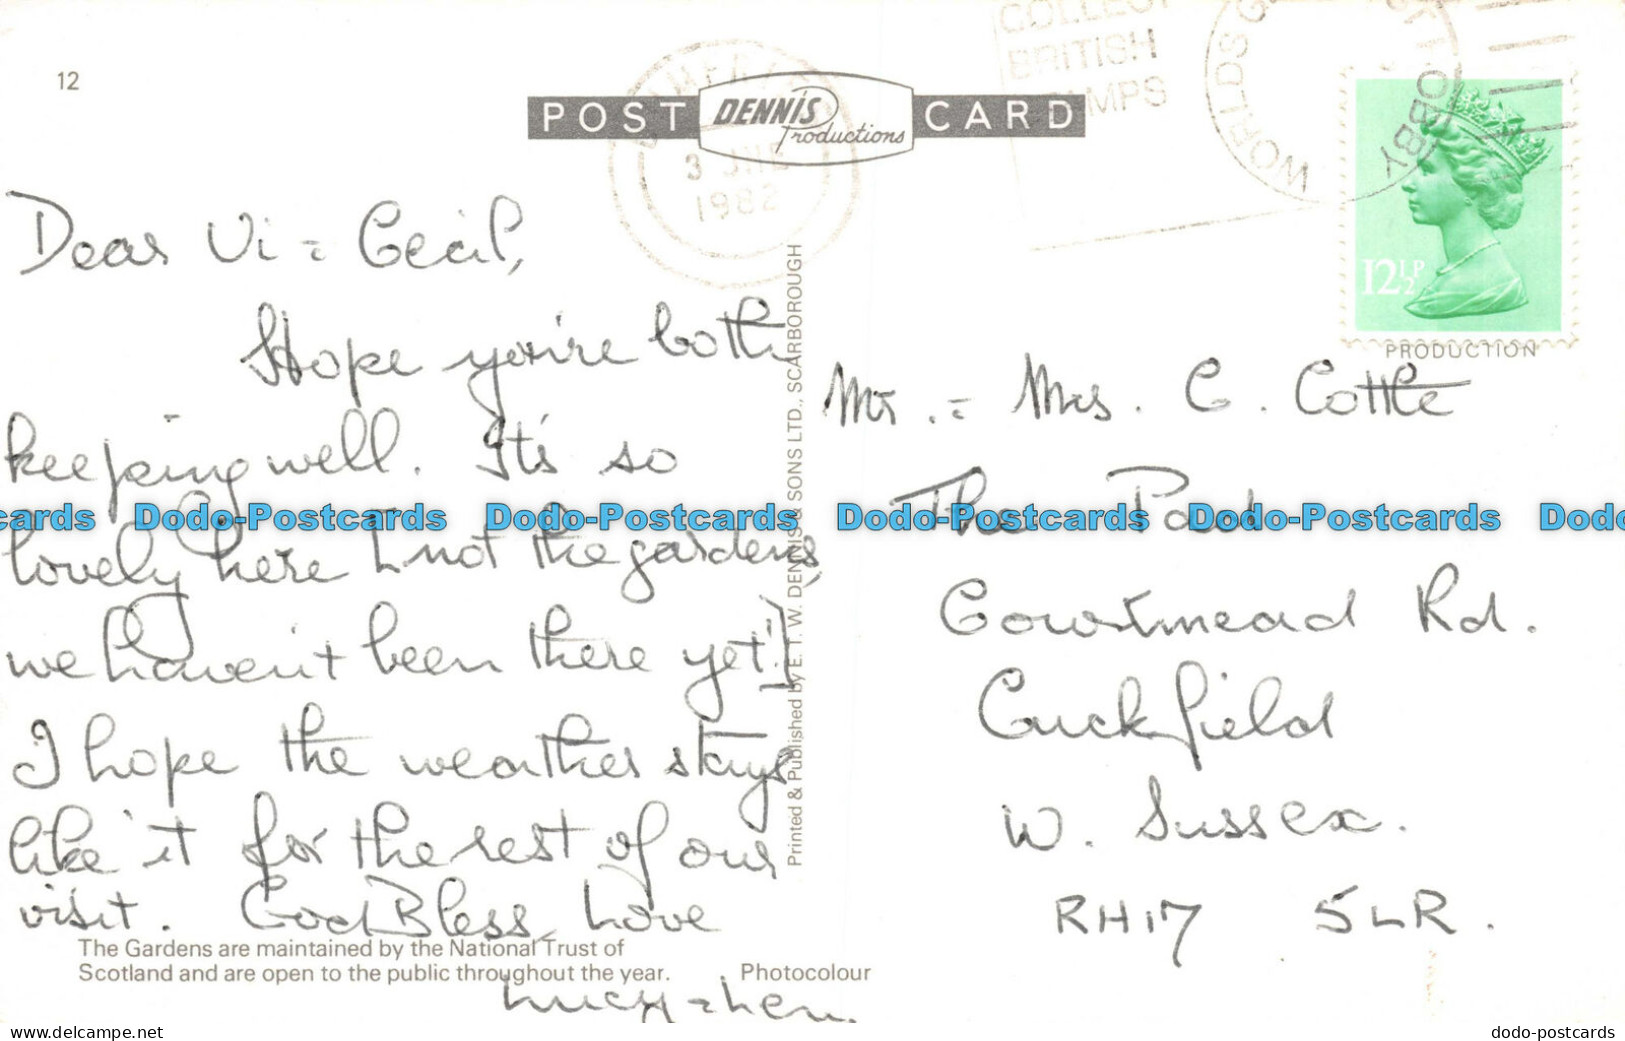 12
POST DENNIS Productions CARD
COLLECT
BRITISH
STAMPS
WORLDS HOBBY
3 JUL
1982
12½P
PRODUCTION
Dear Vi = Cecil,
Hope you're both
keeping well. It's so
lovely here [not the gardens,
we haven't been there yet!]
I hope the weather stays
like it for the rest of our
visit. God Bless, Love
Lucy = Len.
Mr. = Mrs. C. Cottle
The
Courtmead Rd.
Cuckfield
W. Sussex.
RH17 5LR.
Printed & Published by E. T. W. DENNIS & SONS LTD., SCARBOROUGH
The Gardens are maintained by the National Trust of
Scotland and are open to the public throughout the year.
Photocolour
cards Dodo-Postcards Dodo-Postcards Dodo-Postcards Dodo-Postcards Dodo
www.delcampe.net
dodo-postcards